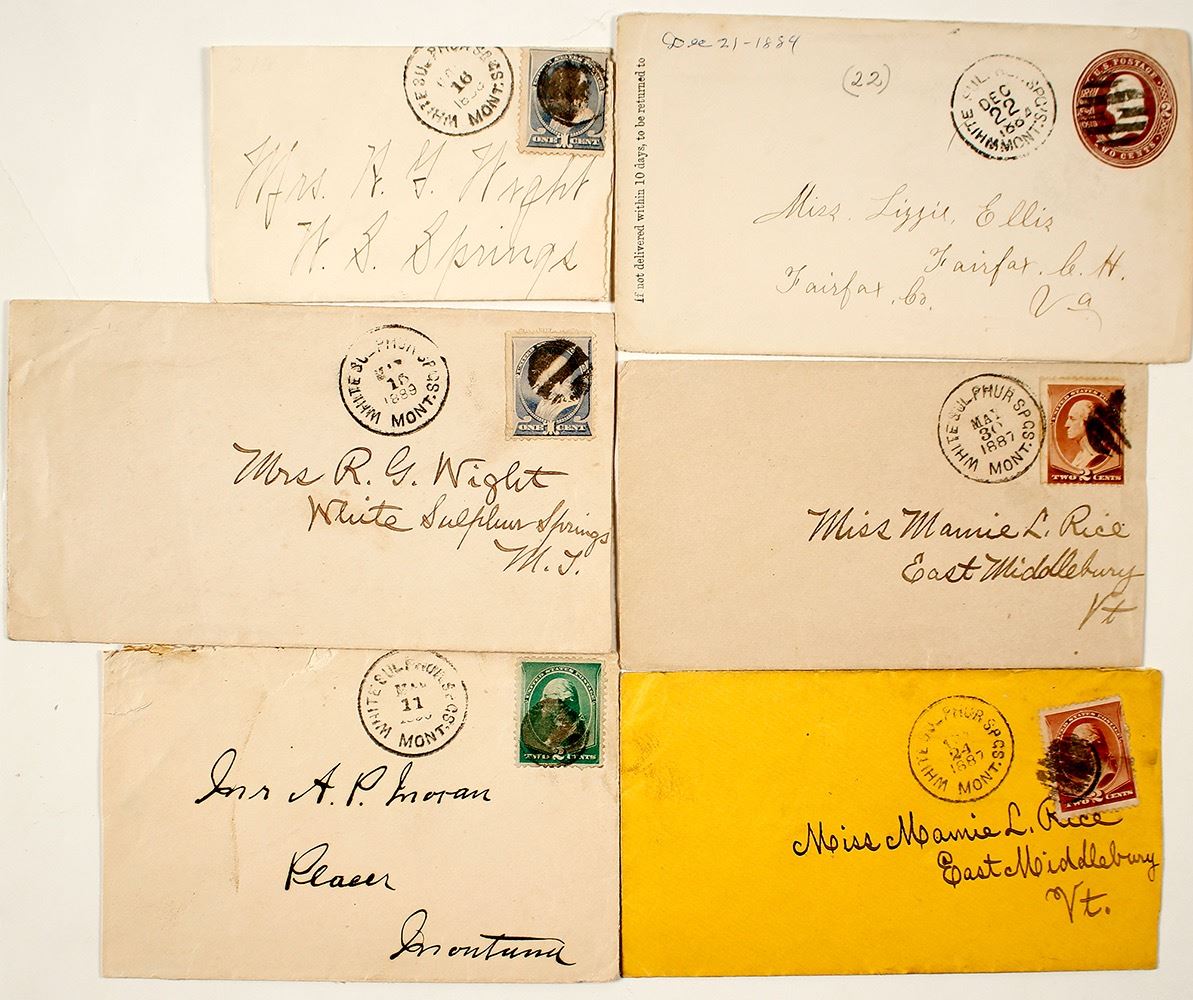 WHITE SULPHUR SPGS.
16
MONT.
ONE 1 CENT
Mrs. R. G. Wight
W. S. Springs
Dec 21-1884
(22)
If not delivered within 10 days, to be returned to
WHITE SULPHUR SPGS.
DEC
22
1884
MONT.
U.S. POSTAGE
TWO CENTS
Miss. Lizzie. Ellis
Fairfax. C. H.
Fairfax. Co.
Va
WHITE SULPHUR SPGS.
16
1889
MONT.
ONE 1 CENT
Mrs R. G. Wight
White Sulphur Springs
M. T.
WHITE SULPHUR SPGS.
MAY
30
1887
MONT.
TWO 2 CENTS
Miss Mamie L. Rice
East Middlebury
Vt
WHITE SULPHUR SPGS.
11
MONT.
UNITED STATES POSTAGE
TWO 2 CENTS
Mr A. P. Moran
Placer
Montana
WHITE SULPHUR SPGS.
24
1887
MONT.
UNITED STATES POSTAGE
TWO 2 CENTS
Miss Mamie L. Rice
East Middlebury
Vt.